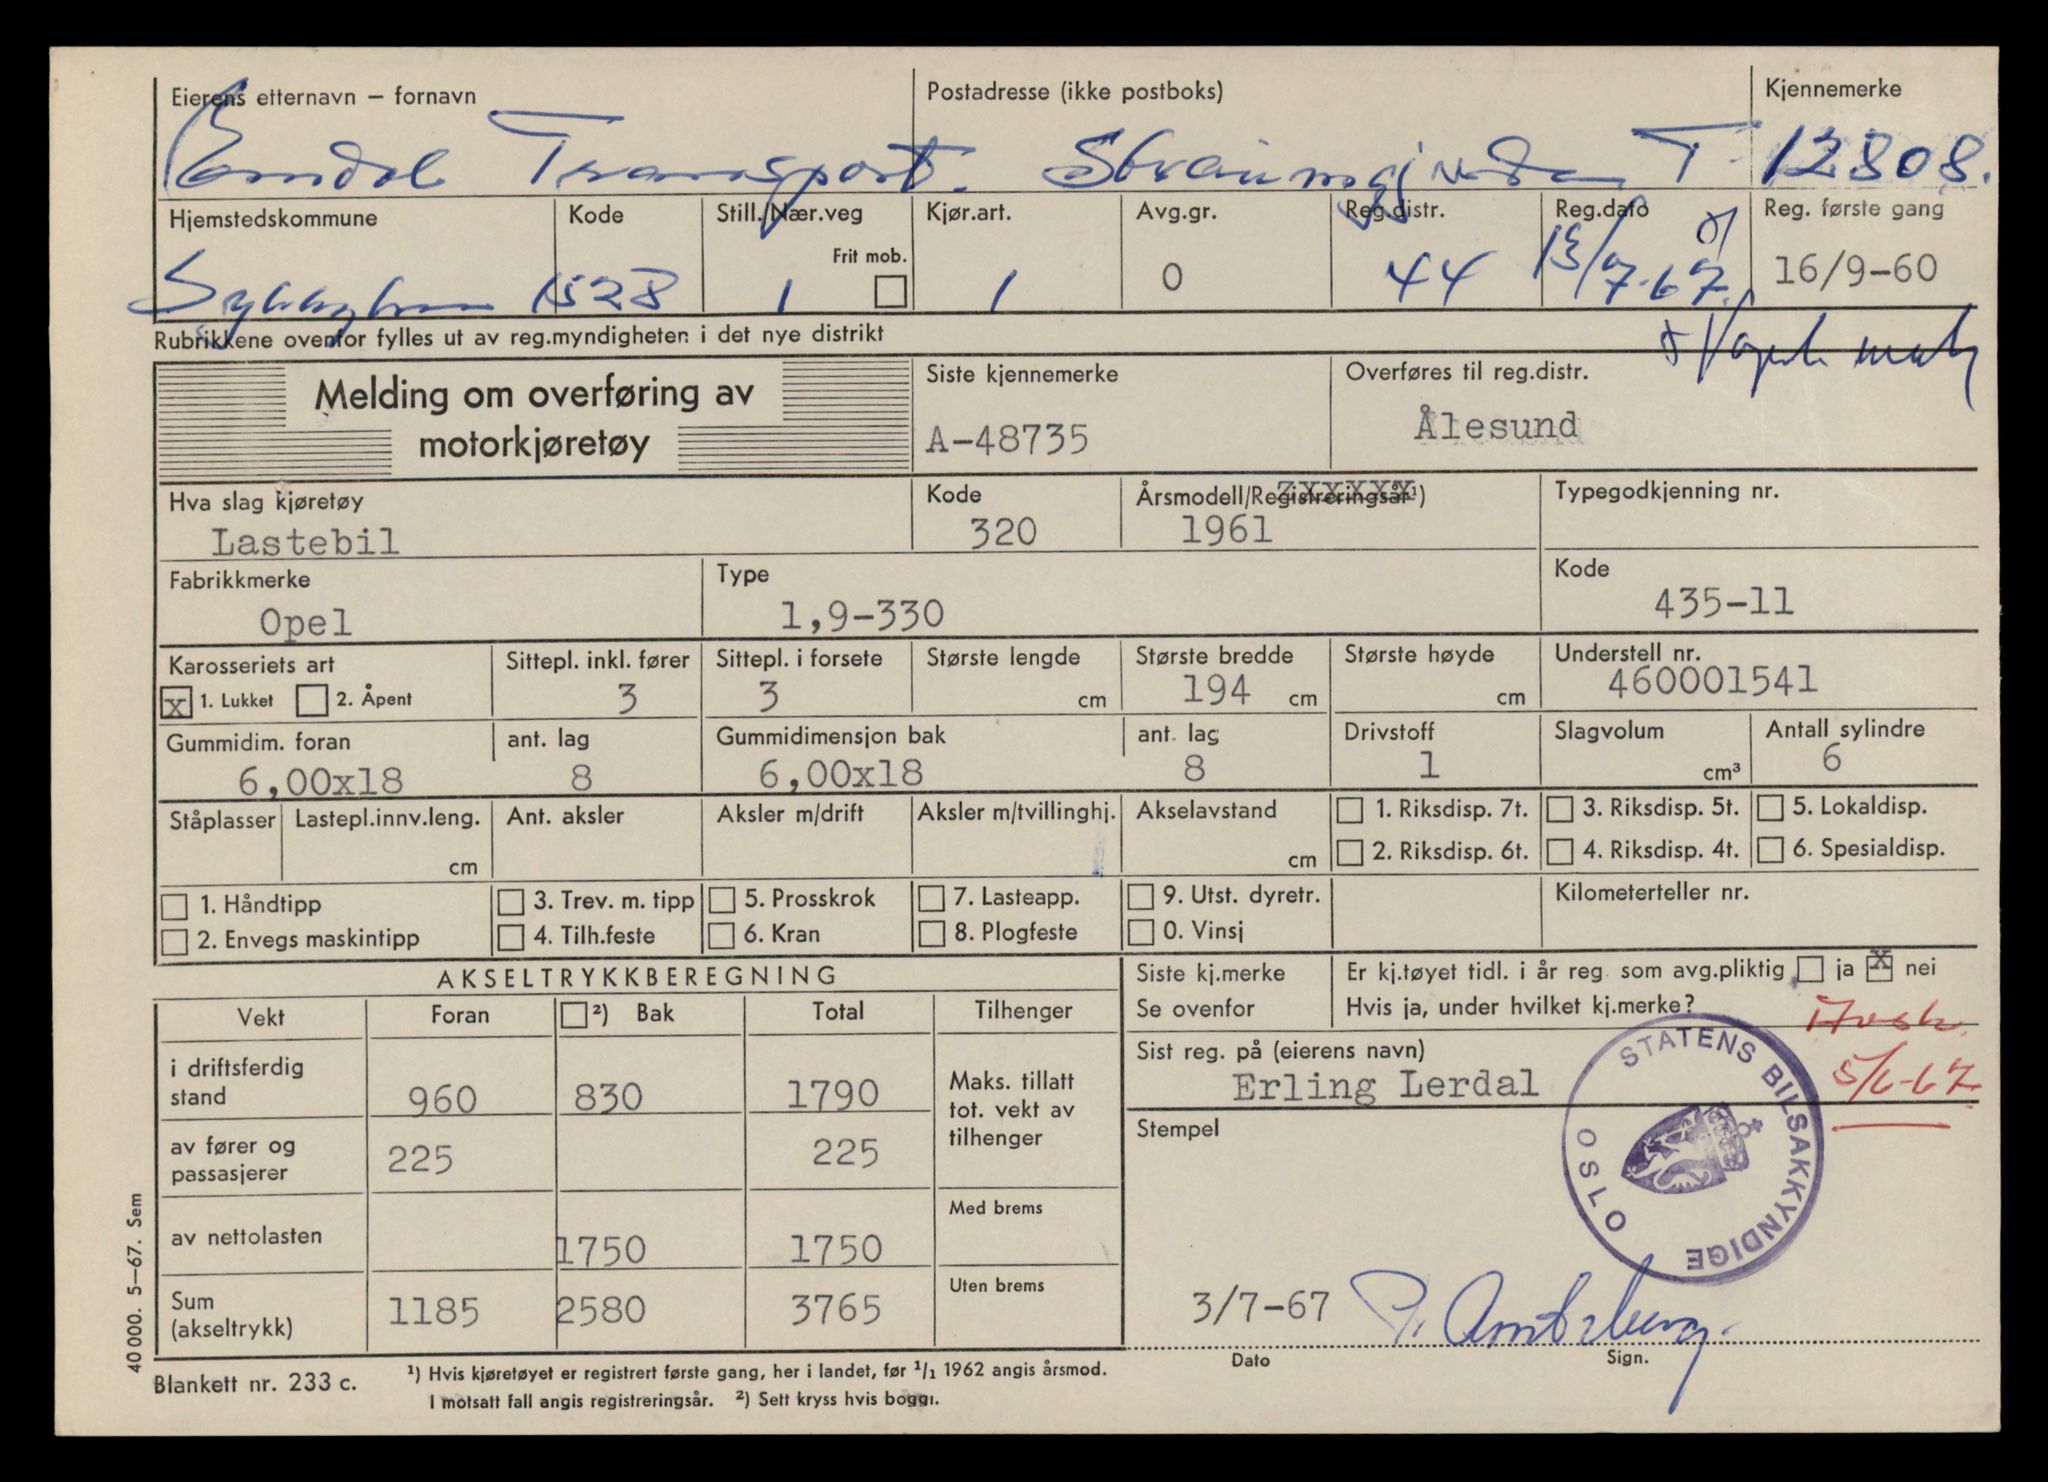 Eierens etternavn – fornavn
Postadresse (ikke postboks)
Kjennemerke
Emdal Transport. Straumgjerde T 12808.
Hjemstedskommune Kode Still./Nær.veg Kjør.art. Avg.gr. Reg.distr. Reg.dato Reg. første gang
Frit mob.
1528 1 1 0 44 13/7-67 16/9-60
Rubrikkene ovenfor fylles ut av reg.myndigheten i det nye distrikt
Melding om overføring av
motorkjøretøy
Siste kjennemerke
A-48735
Overføres til reg.distr.
Ålesund
Hva slag kjøretøy Kode Årsmodell/Registreringsår¹) Typegodkjenning nr.
Lastebil 320 1961
Fabrikkmerke Type Kode
Opel 1,9-330 435-11
Karosseriets art Sittepl. inkl. fører Sittepl. i forsete Største lengde Største bredde Største høyde Understell nr.
x 1. Lukket 2. Åpent 3 3 cm 194 cm cm 460001541
Gummidim. foran ant. lag Gummidimensjon bak ant. lag Drivstoff Slagvolum Antall sylindre
6,00x18 8 6,00x18 8 1 cm³ 6
Ståplasser Lastepl.innv.leng. Ant. aksler Aksler m/drift Aksler m/tvillinghj. Akselavstand 1. Riksdisp. 7t. 3. Riksdisp. 5t. 5. Lokaldisp.
cm cm 2. Riksdisp. 6t. 4. Riksdisp. 4t. 6. Spesialdisp.
1. Håndtipp 3. Trev. m. tipp 5. Prosskrok 7. Lasteapp. 9. Utst. dyretr. Kilometerteller nr.
2. Envegs maskintipp 4. Tilh.feste 6. Kran 8. Plogfeste 0. Vinsj
AKSELTRYKKBEREGNING
Siste kj.merke
Se ovenfor
Er kj.tøyet tidl. i år reg. som avg.pliktig ja x nei
Hvis ja, under hvilket kj.merke?
Vekt Foran ²) Bak Total Tilhenger
i driftsferdig
stand 960 830 1790
Maks. tillatt
tot. vekt av
tilhenger
av fører og
passasjerer 225 225
av nettolasten 1750 1750
Med brems
Sum
(akseltrykk) 1185 2580 3765
Uten brems
Sist reg. på (eierens navn)
Erling Lerdal
5/6-67
Stempel
STATENS BILSAKKYNDIGE
OSLO
3/7-67
Dato Sign.
40 000. 5–67. Sem
Blankett nr. 233 c.
¹) Hvis kjøretøyet er registrert første gang, her i landet, før ¹/₁ 1962 angis årsmod.
I motsatt fall angis registreringsår. ²) Sett kryss hvis boggi.